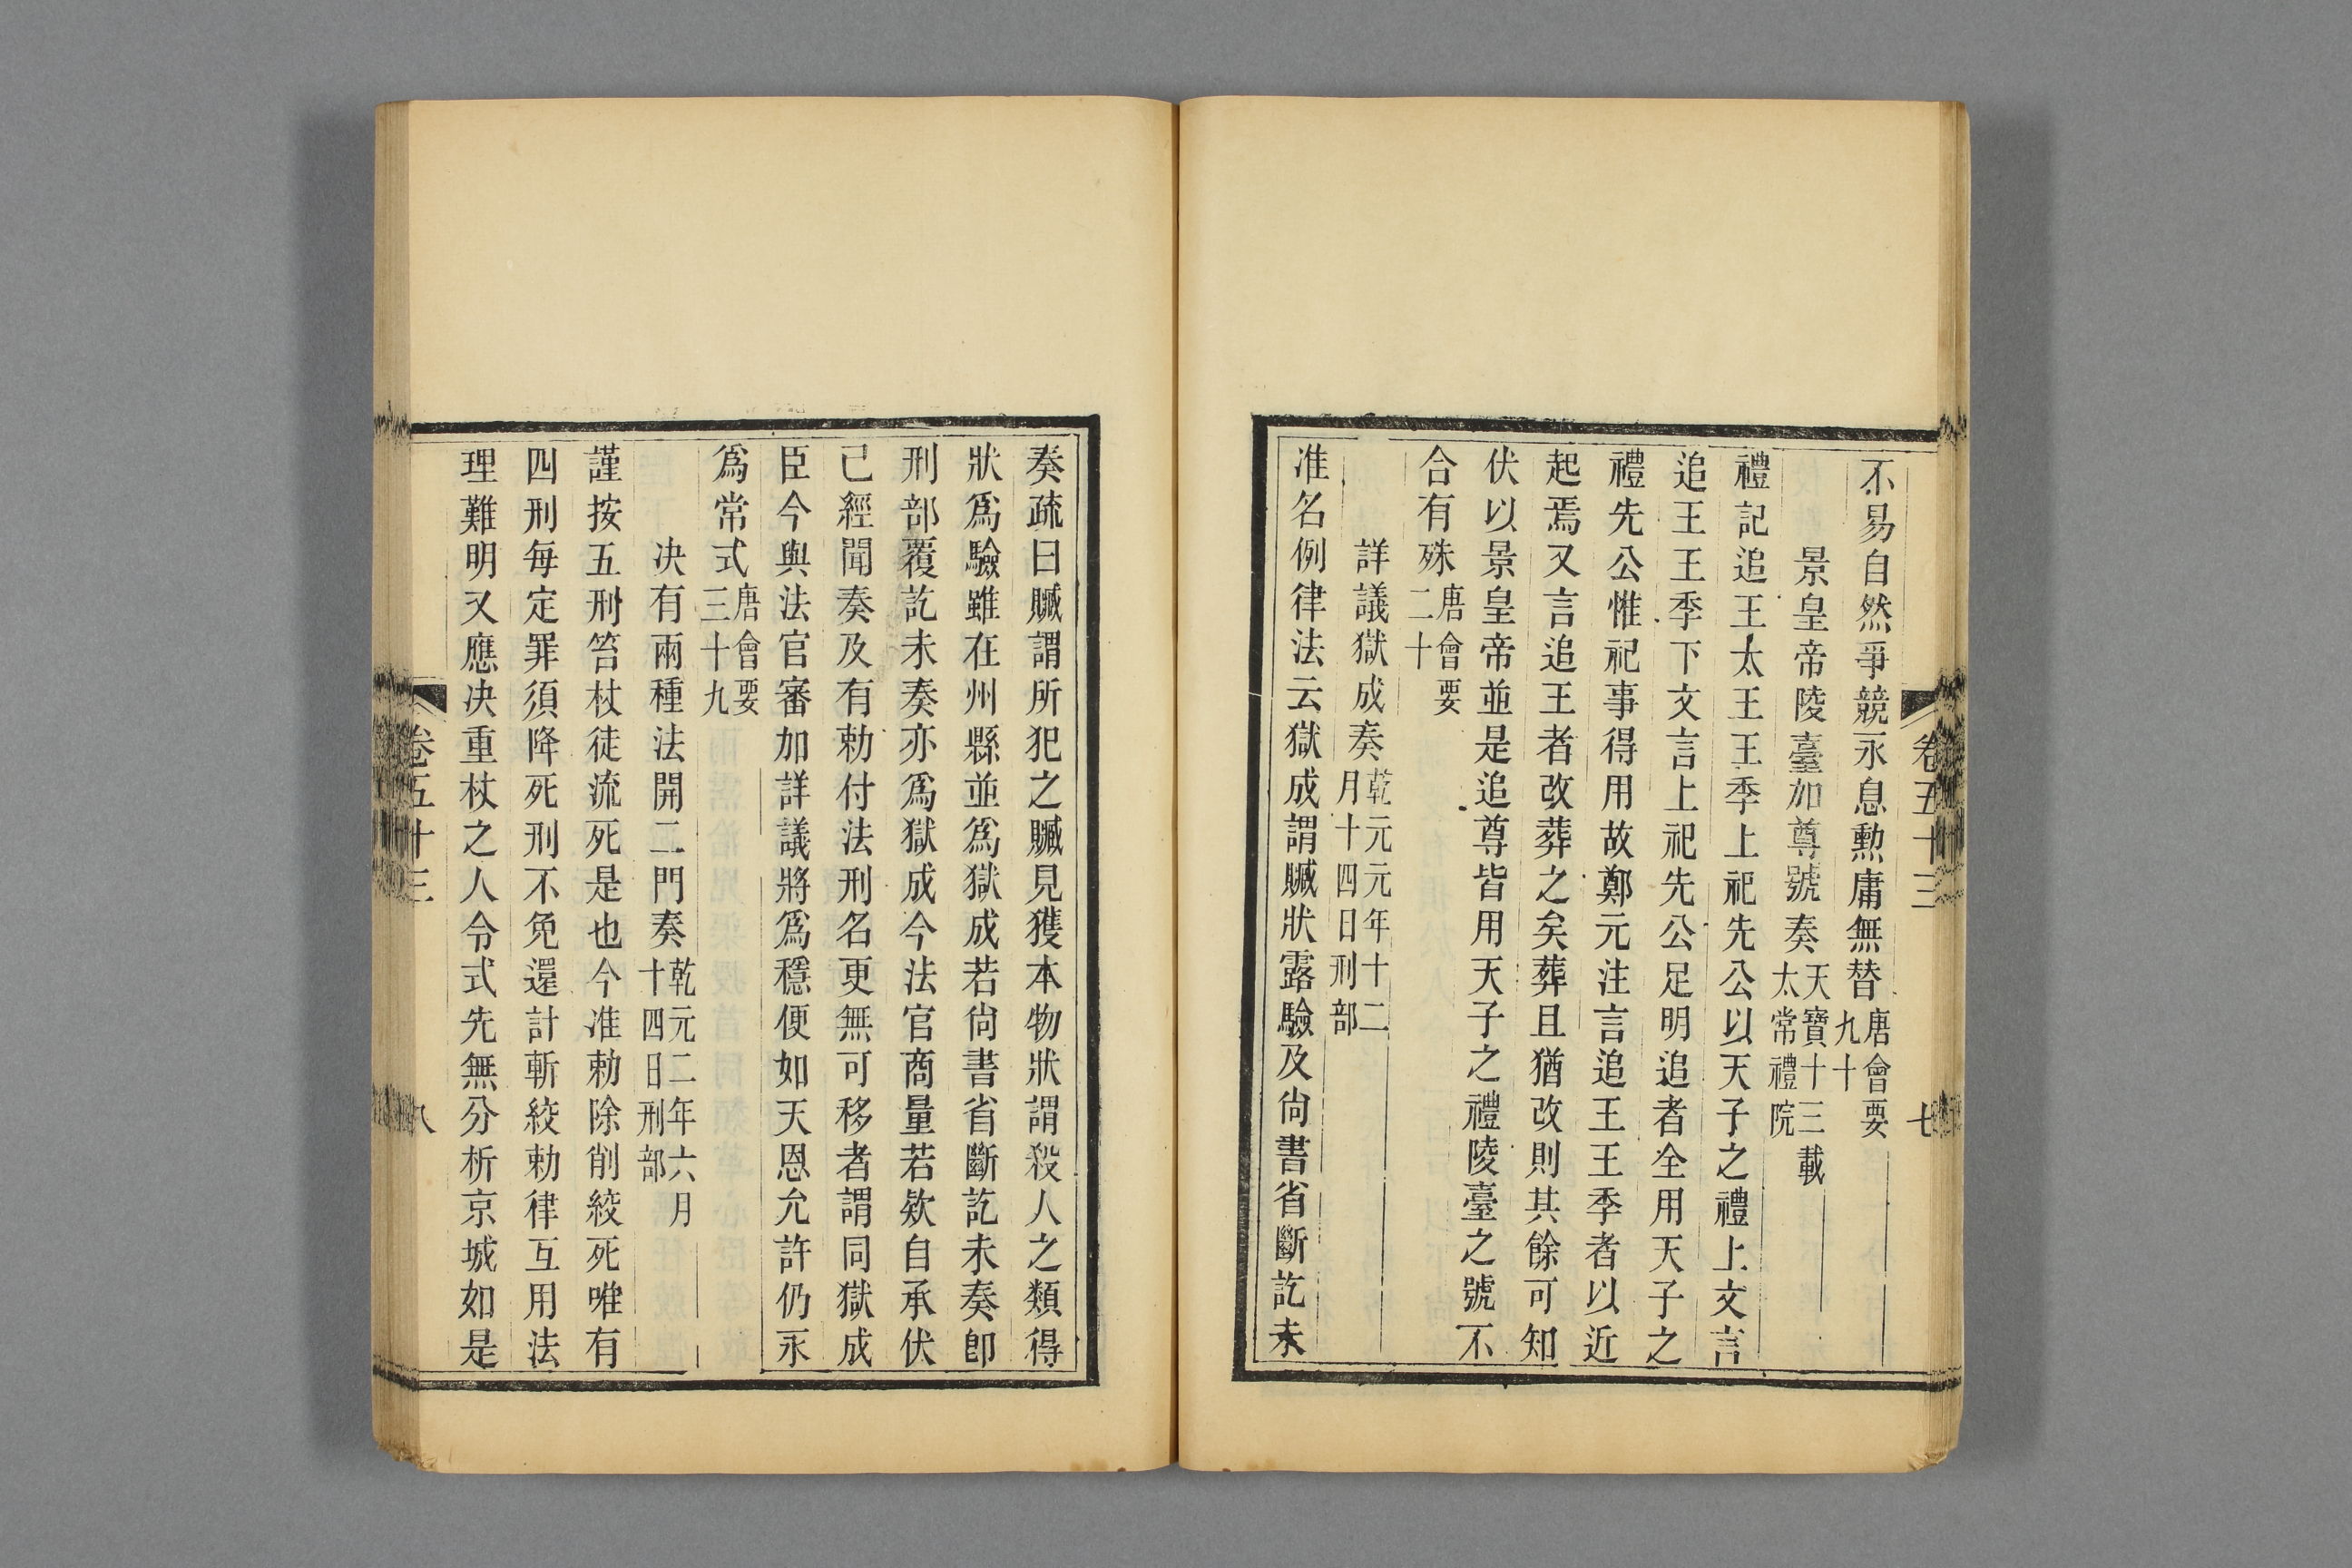 卷五十三
七
不易自然爭競永息勲庸無替唐會要九十
景皇帝陵臺加尊號奏天寶十三載太常禮院
禮記追王太王王季上祀先公以天子之禮上文言
追王王季下文言上祀先公足明追者全用天子之
禮先公惟祀事得用故鄭元注言追王王季者以近
起焉又言追王者改葬之矣葬且猶改則其餘可知
伏以景皇帝並是追尊皆用天子之禮陵臺之號不
合有殊唐會要二十
詳議獄成奏乾元元年十二月十四日刑部
准名例律法云獄成謂贓狀露驗及尙書省斷訖未
奏疏曰贓謂所犯之贓見獲本物狀謂殺人之類得
狀爲驗雖在州縣並爲獄成若尙書省斷訖未奏卽
刑部覆訖未奏亦爲獄成今法官商量若欵自承伏
已經聞奏及有勅付法刑名更無可移者謂同獄成
臣今與法官審加詳議將爲穩便如天恩允許仍永
爲常式唐會要三十九
决有兩種法開二門奏乾元二年六月十四日刑部
謹按五刑笞杖徒流死是也今准勅除削絞死唯有
四刑每定罪須降死刑不免還計斬絞勅律互用法
理難明又應决重杖之人令式先無分析京城如是
卷五十三
八